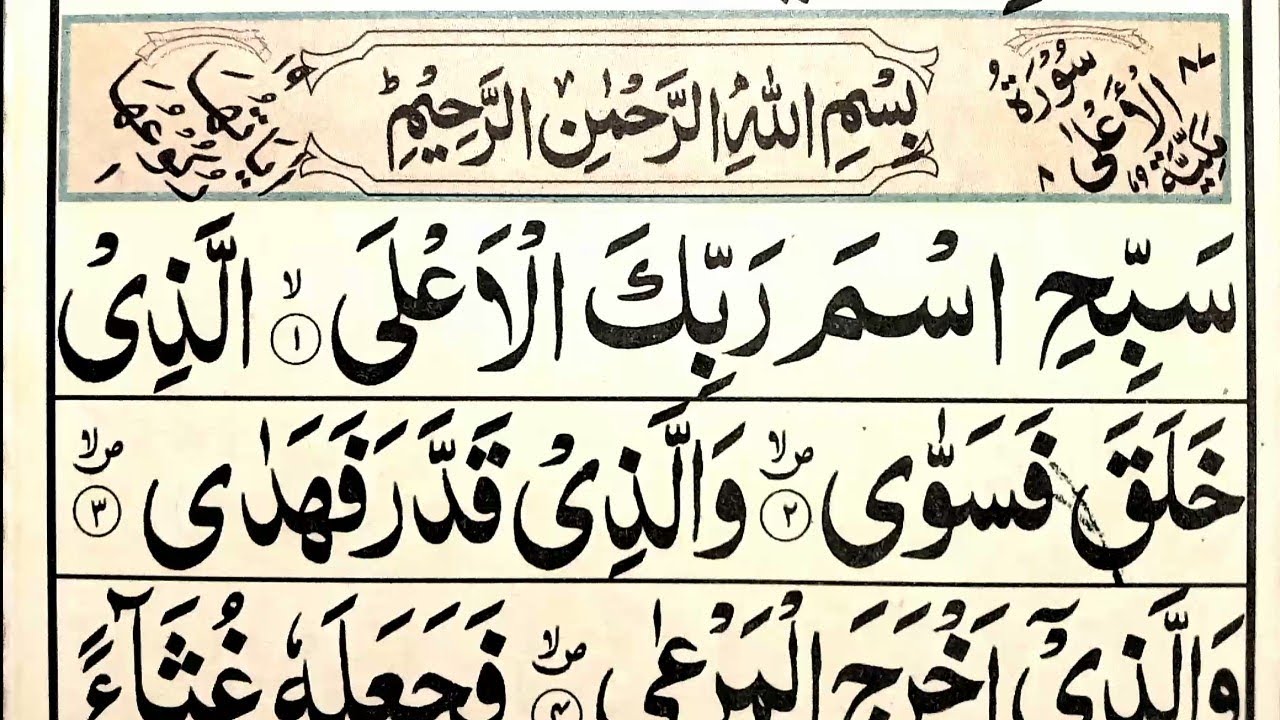 سُوْرَةُ الْأَعْلٰى مَكِّيَّةٌ ٨٧ ٨
بِسْمِ اللّٰهِ الرَّحْمٰنِ الرَّحِيْمِ
اٰيَاتُهَا ١٩ رُكُوْعُهَا ١
سَبِّحِ اسْمَ رَبِّكَ الْاَعْلَى ۙ ١ الَّذِىْ
خَلَقَ فَسَوّٰى ۙ ص ٢ وَالَّذِىْ قَدَّرَ فَهَدٰى ۙ ص ٣
وَالَّذِىْۤ اَخْرَجَ الْمَرْعٰى ۙ ص ٤ فَجَعَلَهٗ غُثَآءً